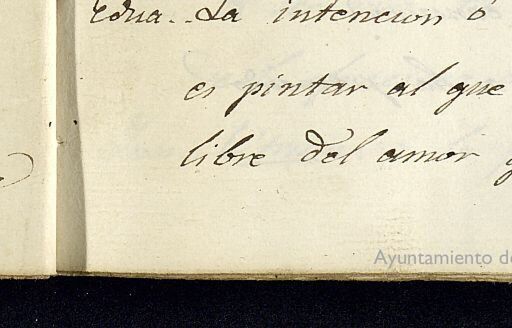 Edua.. La intencion ó
es pintar al que
libre del amor
Ayuntamiento de